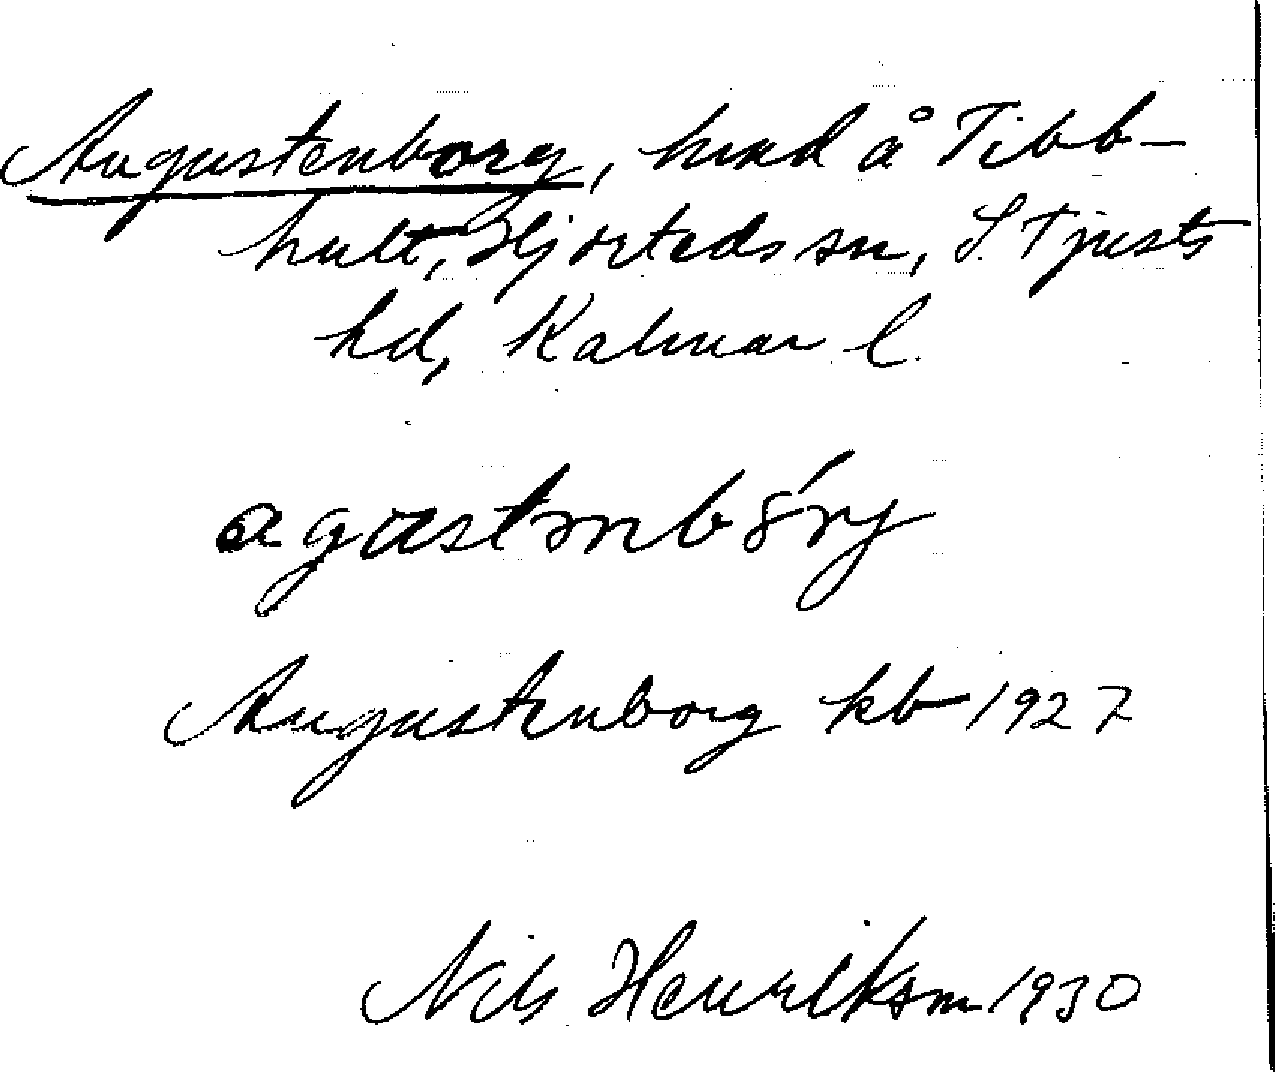 Augustenborg, hmd å Tibb-
hult, Hjorteds sn, S. Tjusts
hd, Kalmar l.
Augustenborg kb 1927
Nils Henrikson 1930